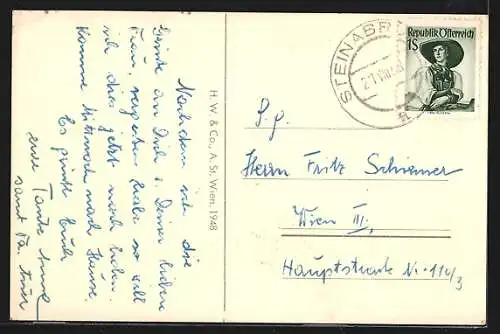 Nachdem ich die
Grüße an Dich u. Deiner lieben
Frau, vergessen habe so will
ich dies jetzt nach holen.
Komme Mittwoch nach Hause.
Es grüßt Euch
eure Tante
samt Fa.
H. W. & Co., A. St. Wien. 1948
STEINABR
Republik Österreich
1S
Herrn Fritz Schiemer
Wien III,
Hauptstraße Nr. 110/3